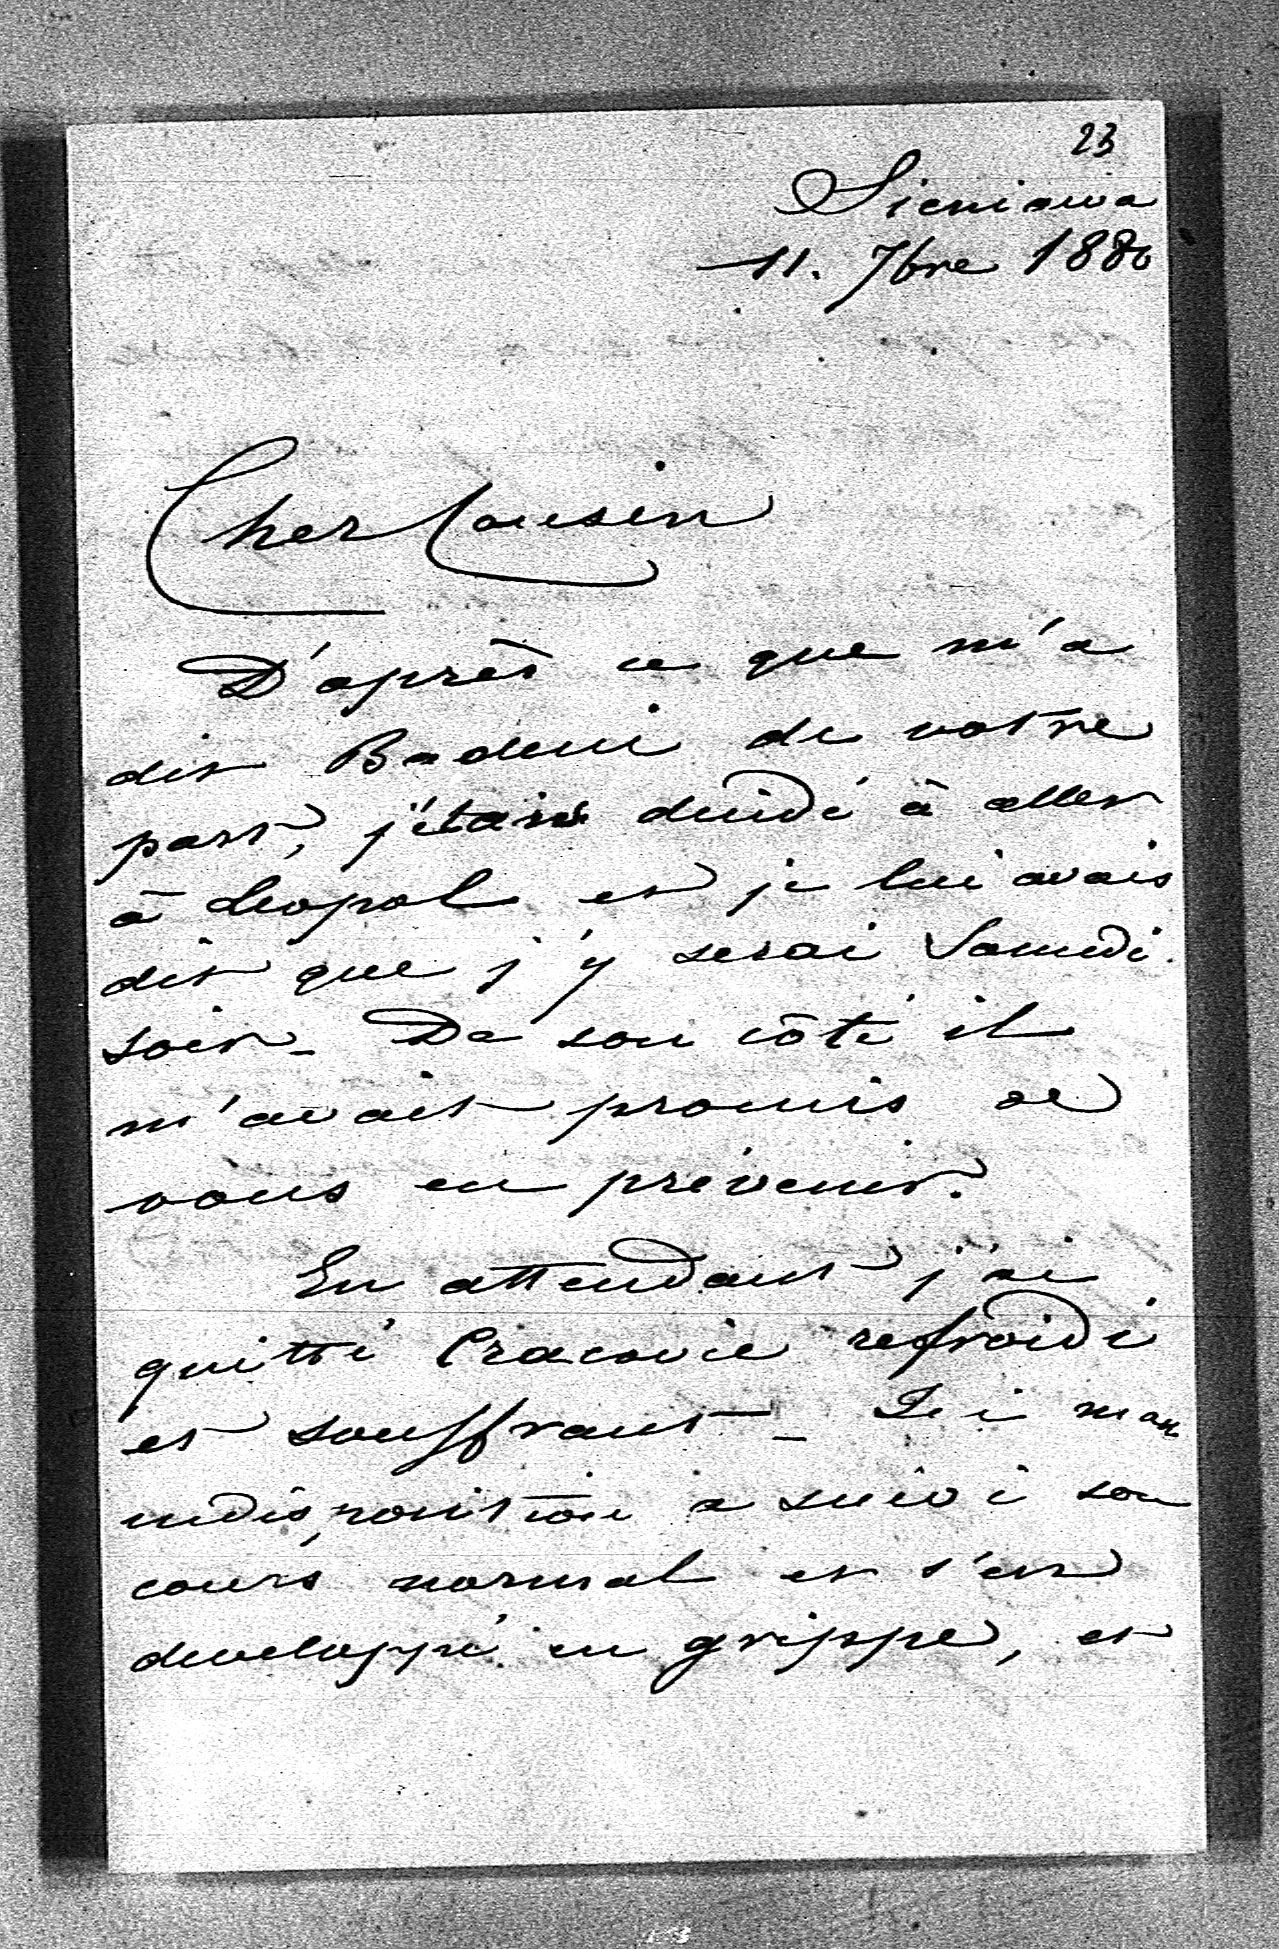 23
Sieniawa
11. 7bre 1880
Cher Cousin
D'après ce que m'a
dit Badeni de votre
part, j'étais decidé à aller
à Leopol et je lui avais
dit que j'y serai Samedi
soir _ De son côté il
m'avait promis de
vous en prévenir.
En attendant j'ai
quitté Cracovie refroidi
et souffrant _ Ici mon
indisposition a suivi son
cours normal et s'est
developpé en grippe, et